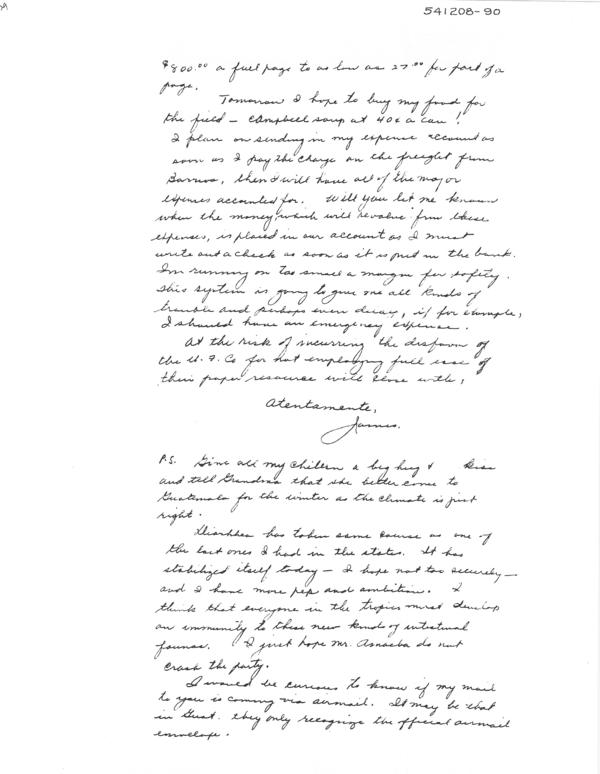 541208-90
$800.00 a full page to as low as 27.00 for part of a
page.
Tomorrow I hope to buy my food for
the field — Campbell soup at 40¢ a can!
I plan on sending in my expense account as
soon as I pay the charge on the freight from
Barrios, then I will have all of the major
expenses accounted for. Will you let me know
when the money, which will revolve from these
expenses, is placed in our account as I must
write out a check as soon as it is put in the bank.
I'm running on too small a margin for safety.
This system is going to give me all kinds of
trouble and perhaps even decay, if for example,
I should have an emergency expense.
At the risk of incurring the disfavor of
the U. F. Co for not employing full use of
their paper resource will close with,
Atentamente,
James.
P.S. Give all my chillern a big hug & kiss
and tell Grandma that she better come to
Guatemala for the winter as the climate is just
right.
Diarhhea has taken same course as one of
the last ones I had in the states. It has
stabilized itself today — I hope not too securely —
and I have more pep and ambition. I
think that everyone in the tropics must develop
an immunity to these new kinds of intestinal
faunas. I just hope Mr. Amoeba do not
crash the party.
I would be curious to know if my mail
to you is coming via airmail. It may be that
in Guat. they only recognize the official airmail
envelope.